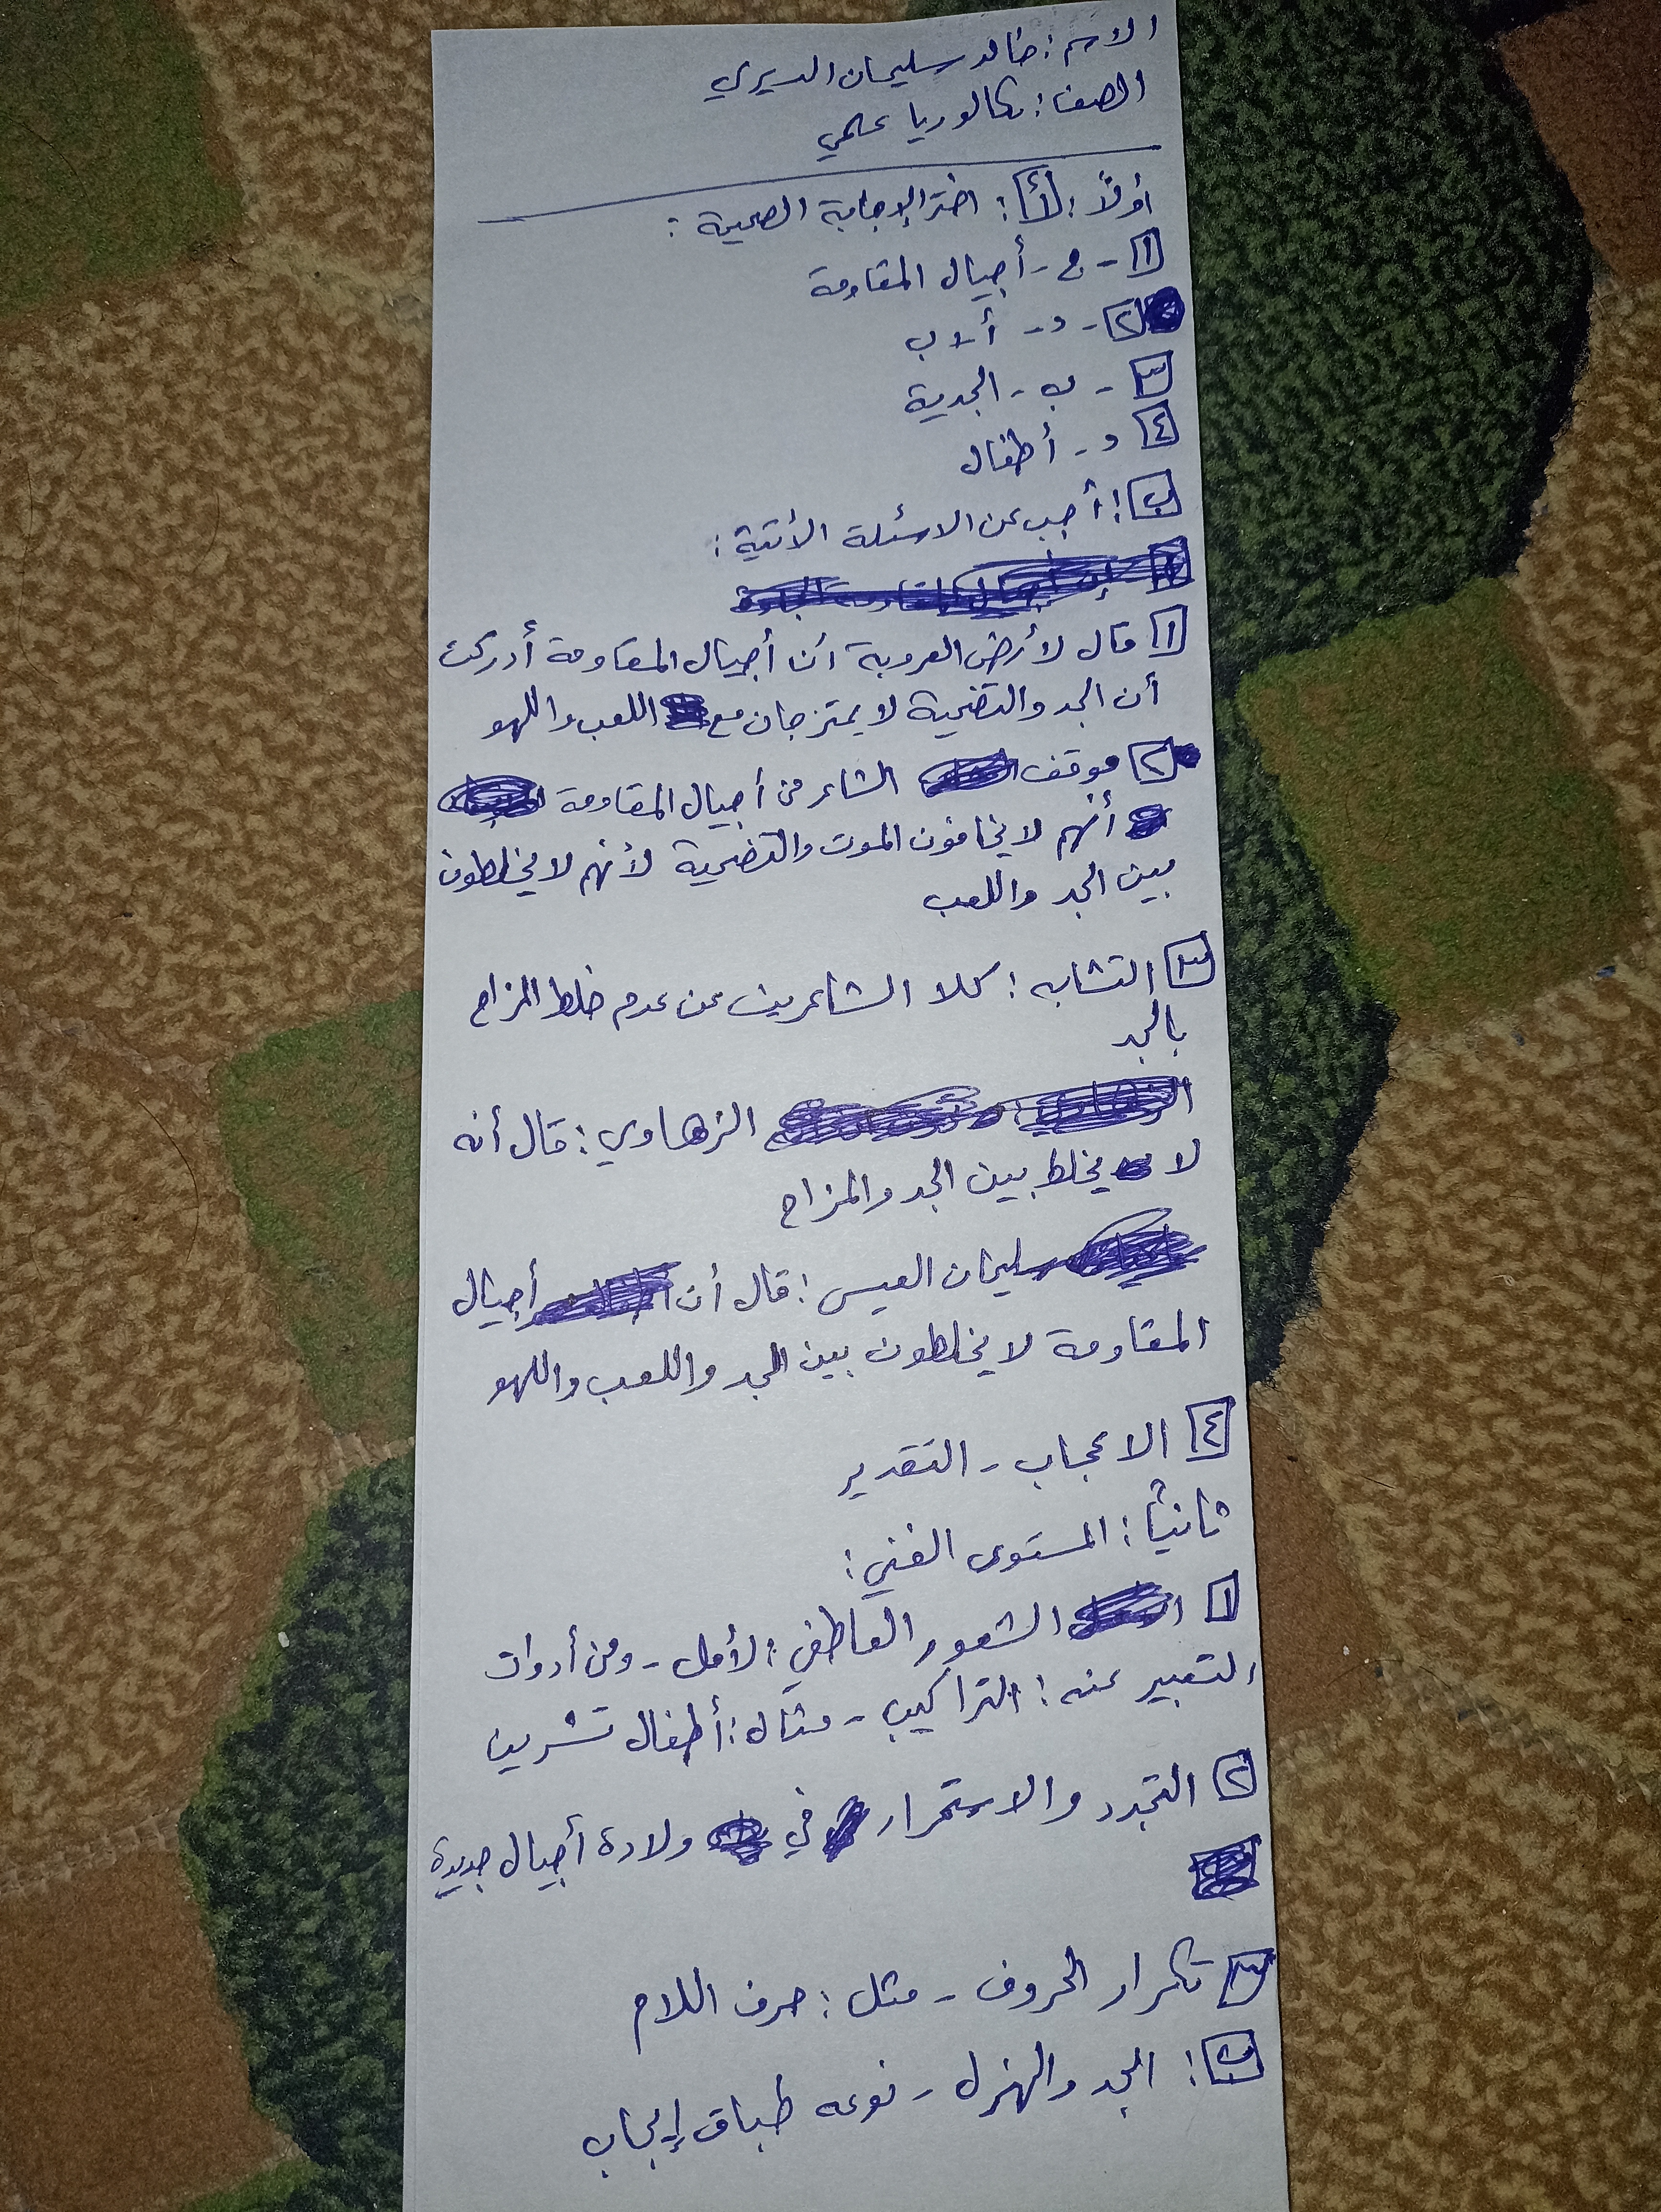 الاسم: خالد سليمان الديري
الصف: بكالوريا علمي
أولاً: أ: اختر الإجابة الصحيحة:
١ - ج - أجيال المقاومة
٢ - د - ألاب
٣ - ب - الجدية
٤ د - أطفال
ب: أجب عن الاسئلة الأتية:
١ قال لأرض العروبة أن أجيال المقاومة أدركت
أن الجد والتضحية لا يمتزجان مع اللعب واللهو
٢ موقف الشاعر من أجيال المقاومة
أنهم لا يخافون الموت والتضحية لأنهم لا يخلطون
بين الجد واللعب
٣ التشابه: كلا الشاعرين عن عدم خلط المزاح
بالجد
الزهاوي: قال أنه
لا يخلط بين الجد والمزاح
سليمان العيسى: قال أن أجيال
المقاومة لا يخلطون بين الجد واللعب واللهو
٤ الاعجاب - التقدير
ثانياً: المستوى الفني:
١ الشعور العاطفي: الأمل - ومن أدوات
التعبير عنه: التراكيب - مثال: أطفال تشرين
٢ التجدد والاستمرار في ولادة أجيال جديدة
٣ تكرار الحروف - مثل: حرف اللام
ب: الجد والهزل - نوعه طباق إيجاب